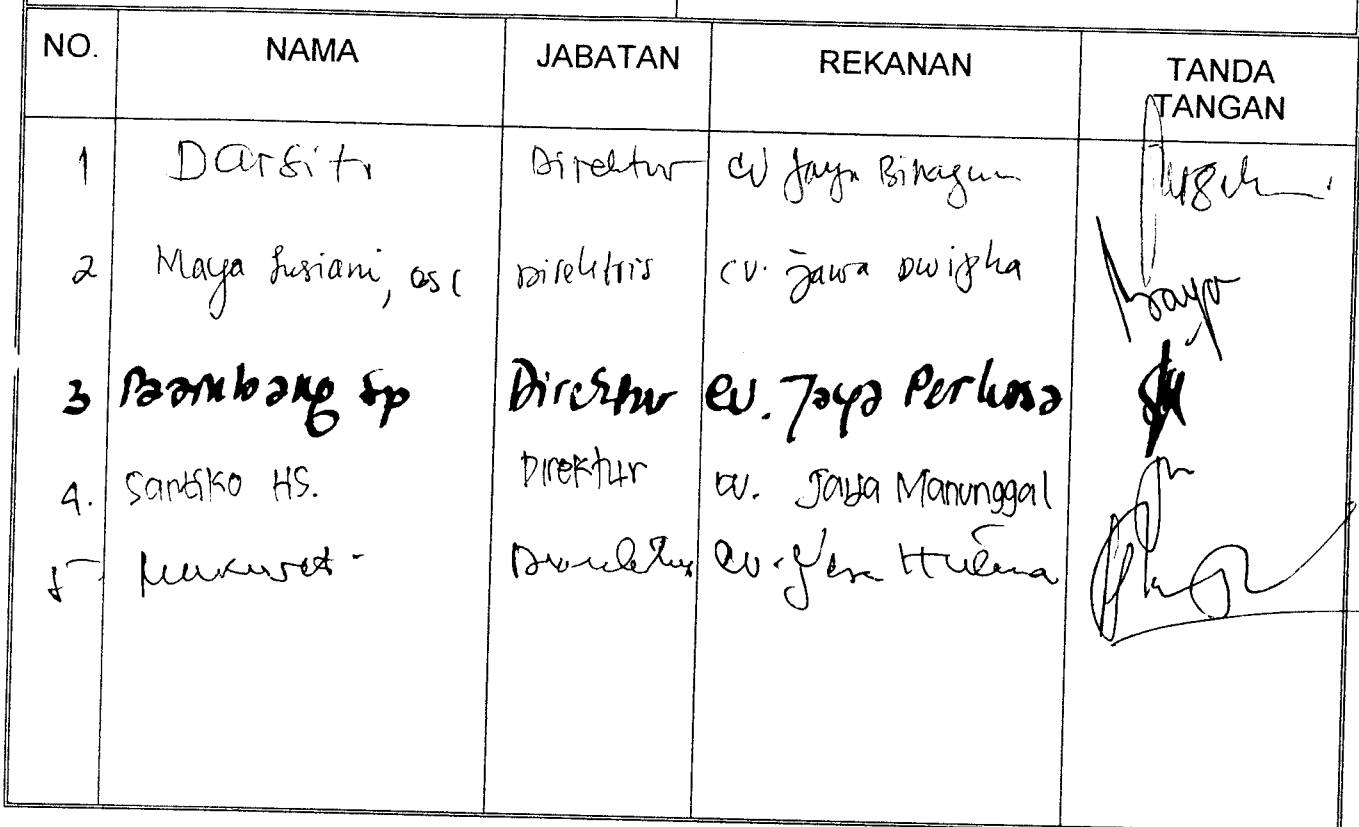 NO. NAMA JABATAN REKANAN TANDA TANGAN
1 Darsiti Direktur CV Jaya
2 Maya Lusiani, Direktris CV. Jawa Dwipha
3 Bambang Sp Direktur CV. Jaya Perkosa
4. Santiko HS. Direktur CV. Jaya Manunggal
5 Direktur CV.